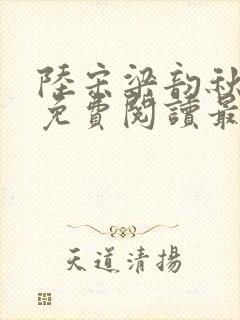 陸宗梁韵秋
免費閱讀最
天道清揚